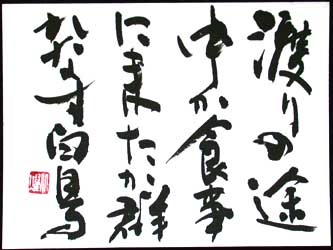 渡りの途
中か食事
に来たか群
れなす白鳥